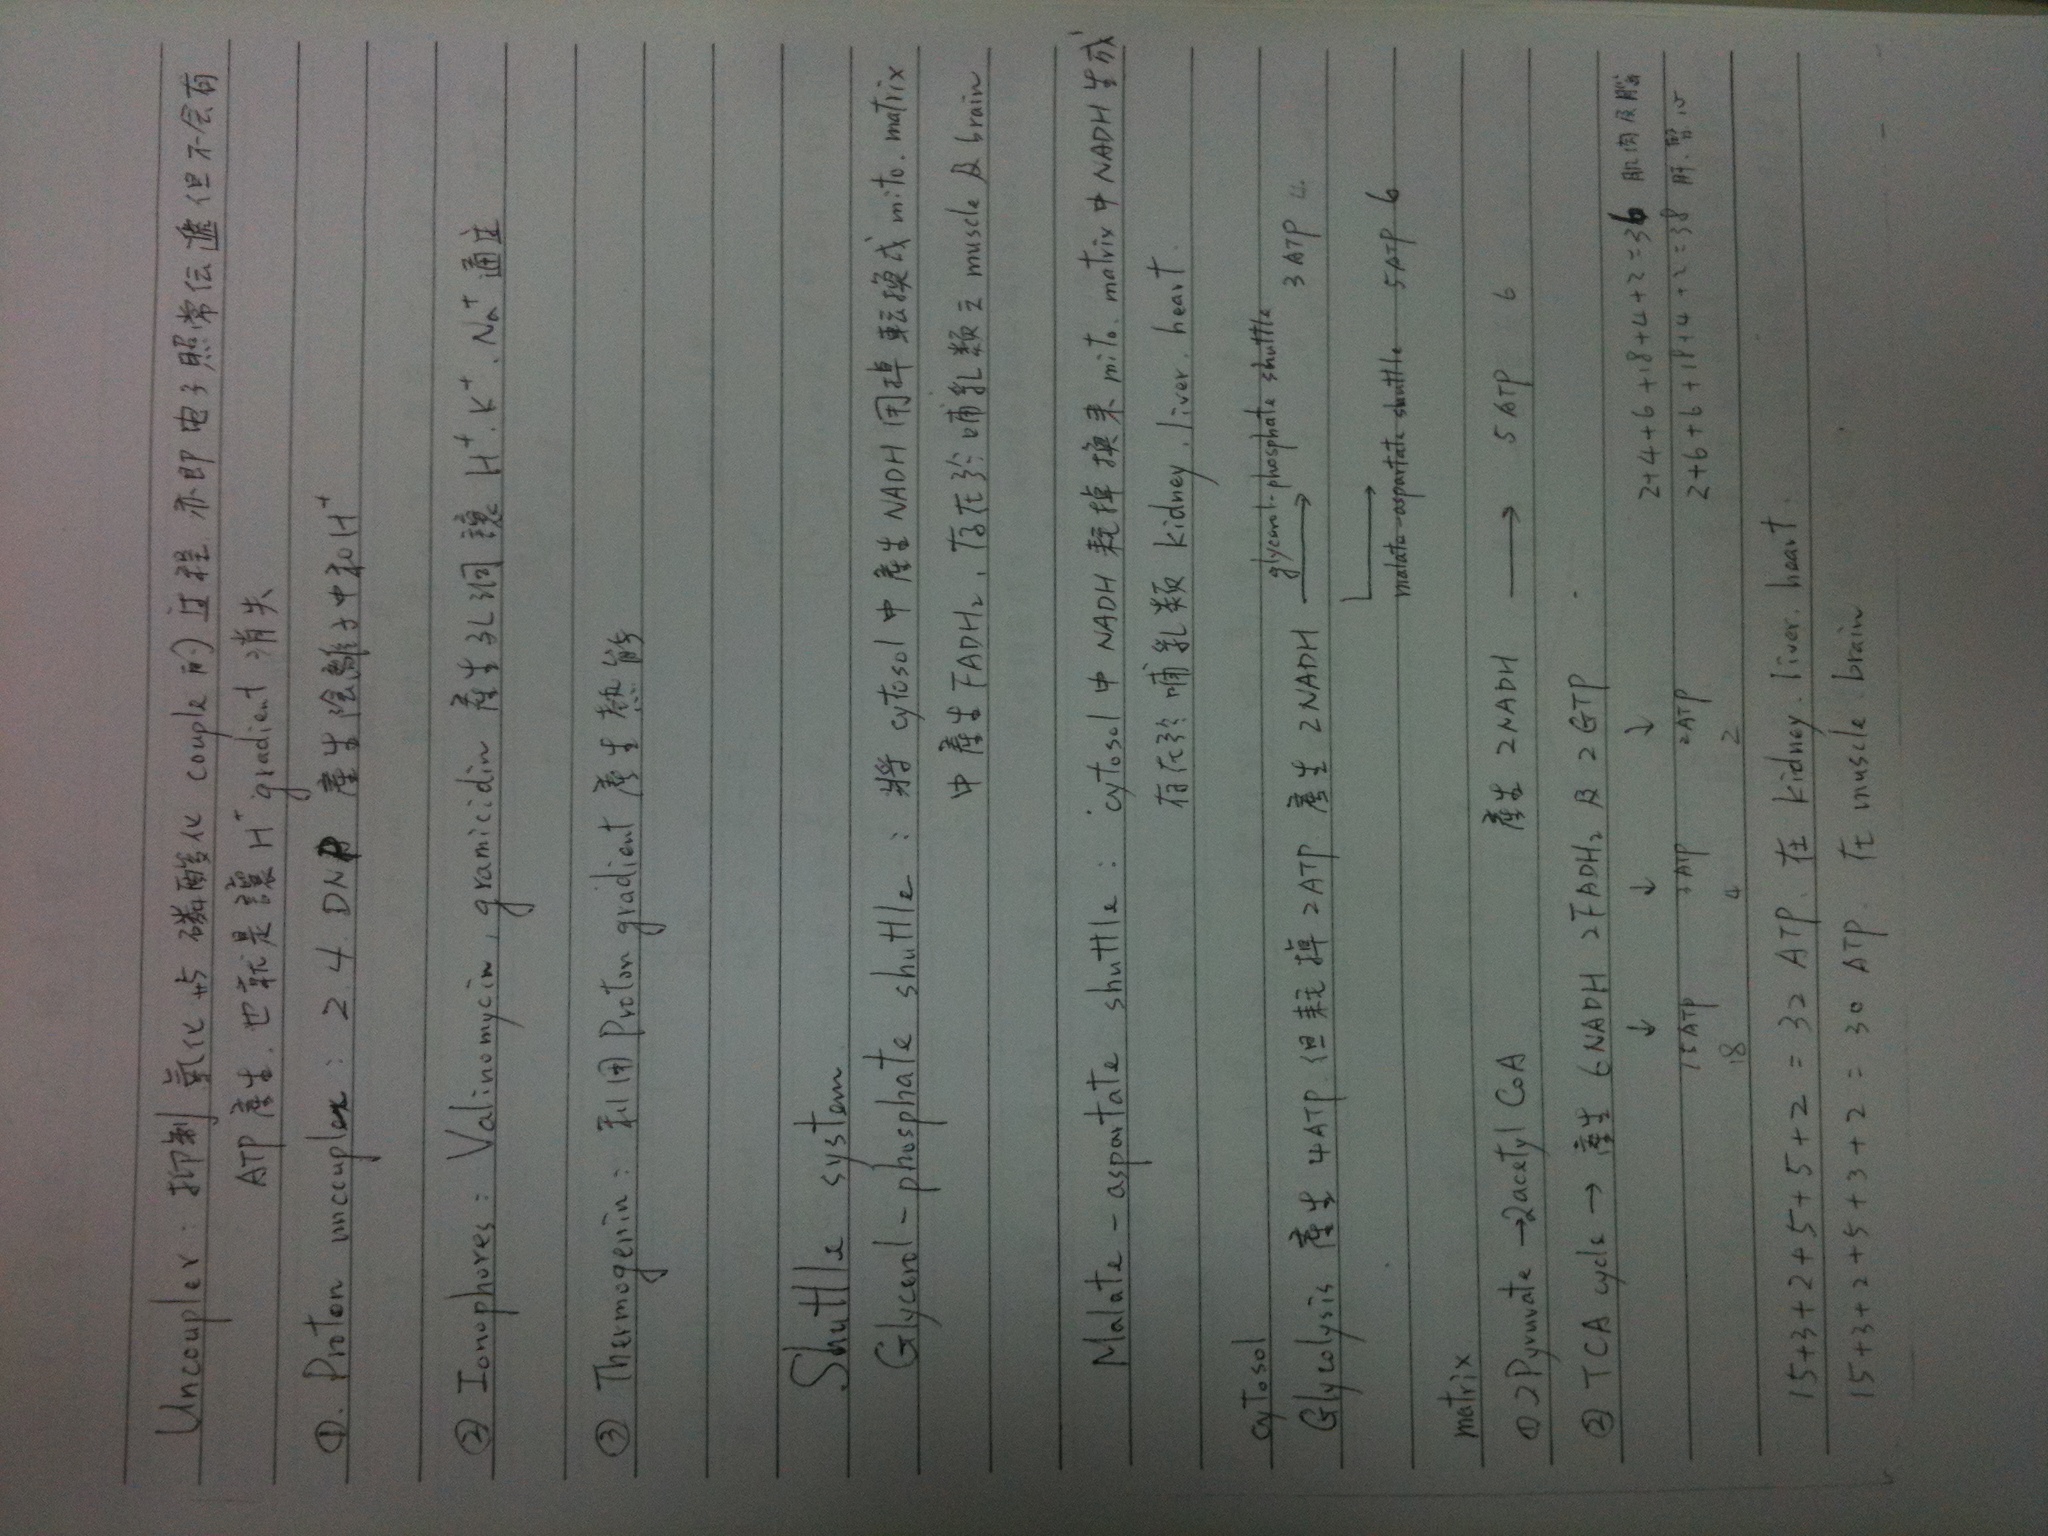 Uncoupler : 抑制氧化與磷酸化 couple 的過程 亦即電子照常傳遞但不会有
ATP 產生. 也就是讓 H⁺ gradient 消失
①. Proton uncoupler : 2.4 DNP 產生陰離子中和H⁺
② Ionophores : Valinomycin, gramicidin 產生孔洞讓 H⁺. K⁺. Na⁺ 通过
③ Thermogenin : 利用 Proton gradient 產生熱能
Shuttle system
Glycerol-phosphate shuttle : 將 cytosol 中產生 NADH 用掉轉換成 mito. matrix
中產生 FADH₂, 存在於哺乳類之 muscle 及 brain
Malate-aspartate shuttle : cytosol 中 NADH 耗掉換來 mito. matrix 中 NADH 生成
存在於哺乳類 kidney. liver. heart.
cytosol glycerol-phosphate shuttle
Glycolysis 產生 4ATP 但耗掉 2ATP 產生 2NADH → 3ATP 4
malate-aspartate shuttle 5ATP 6
matrix
① 2Pyruvate → 2acetyl CoA 產生 2NADH → 5ATP 6
② TCA cycle → 產生 6NADH 2FADH₂ 及 2GTP
↓ ↓ ↓ 2+4+6+18+4+2=36 肌肉及腦
15ATP 3ATP 2ATP 2+6+6+18+4+2=38 肝.腎.心
18 4 2
15+3+2+5+5+2 = 32 ATP. 在 kidney. liver. heart.
15+3+2+5+3+2 = 30 ATP. 在 muscle. brain